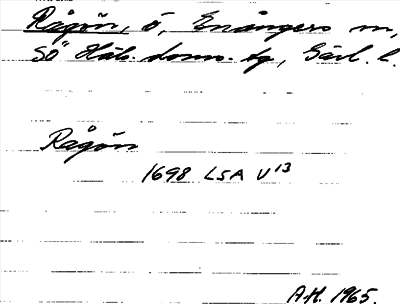 Rågön, ö, Enångers sn,
SÖ Häls. doms. tg, Gävl. l.
Rågön
1698 LSA U13
A.H. 1965.